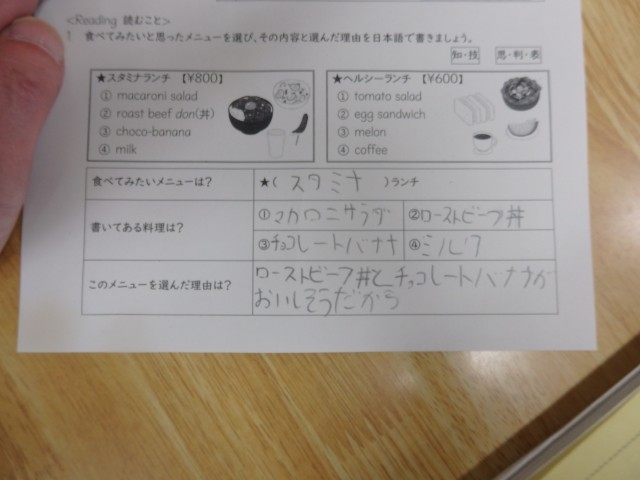 <Reading 読むこと>
1 食べてみたいと思ったメニューを選び、その内容と選んだ理由を日本語で書きましょう。
知・技 思・判・表
★スタミナランチ 【¥800】
① macaroni salad
② roast beef don(丼)
③ choco-banana
④ milk
★ヘルシーランチ 【¥600】
① tomato salad
② egg sandwich
③ melon
④ coffee
食べてみたいメニューは? ★( スタミナ )ランチ
書いてある料理は? ①マカロニサラダ ②ローストビーフ丼
③チョコレートバナナ ④ミルク
このメニューを選んだ理由は? ローストビーフ丼とチョコレートバナナが
おいしそうだから